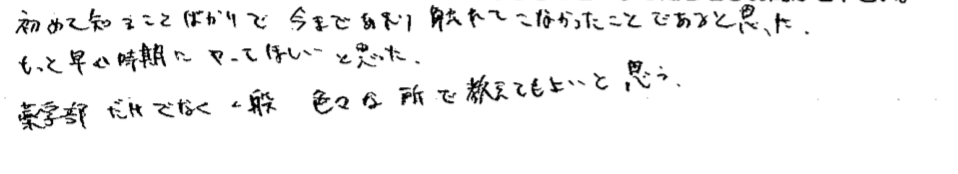 初めて知ることばかりで 今まであまり 触れてこなかったことであると思った.
もっと早い時期に やってほしいと思った.
薬学部 だけでなく 一般 色々な 所で 教えてもよいと 思う.